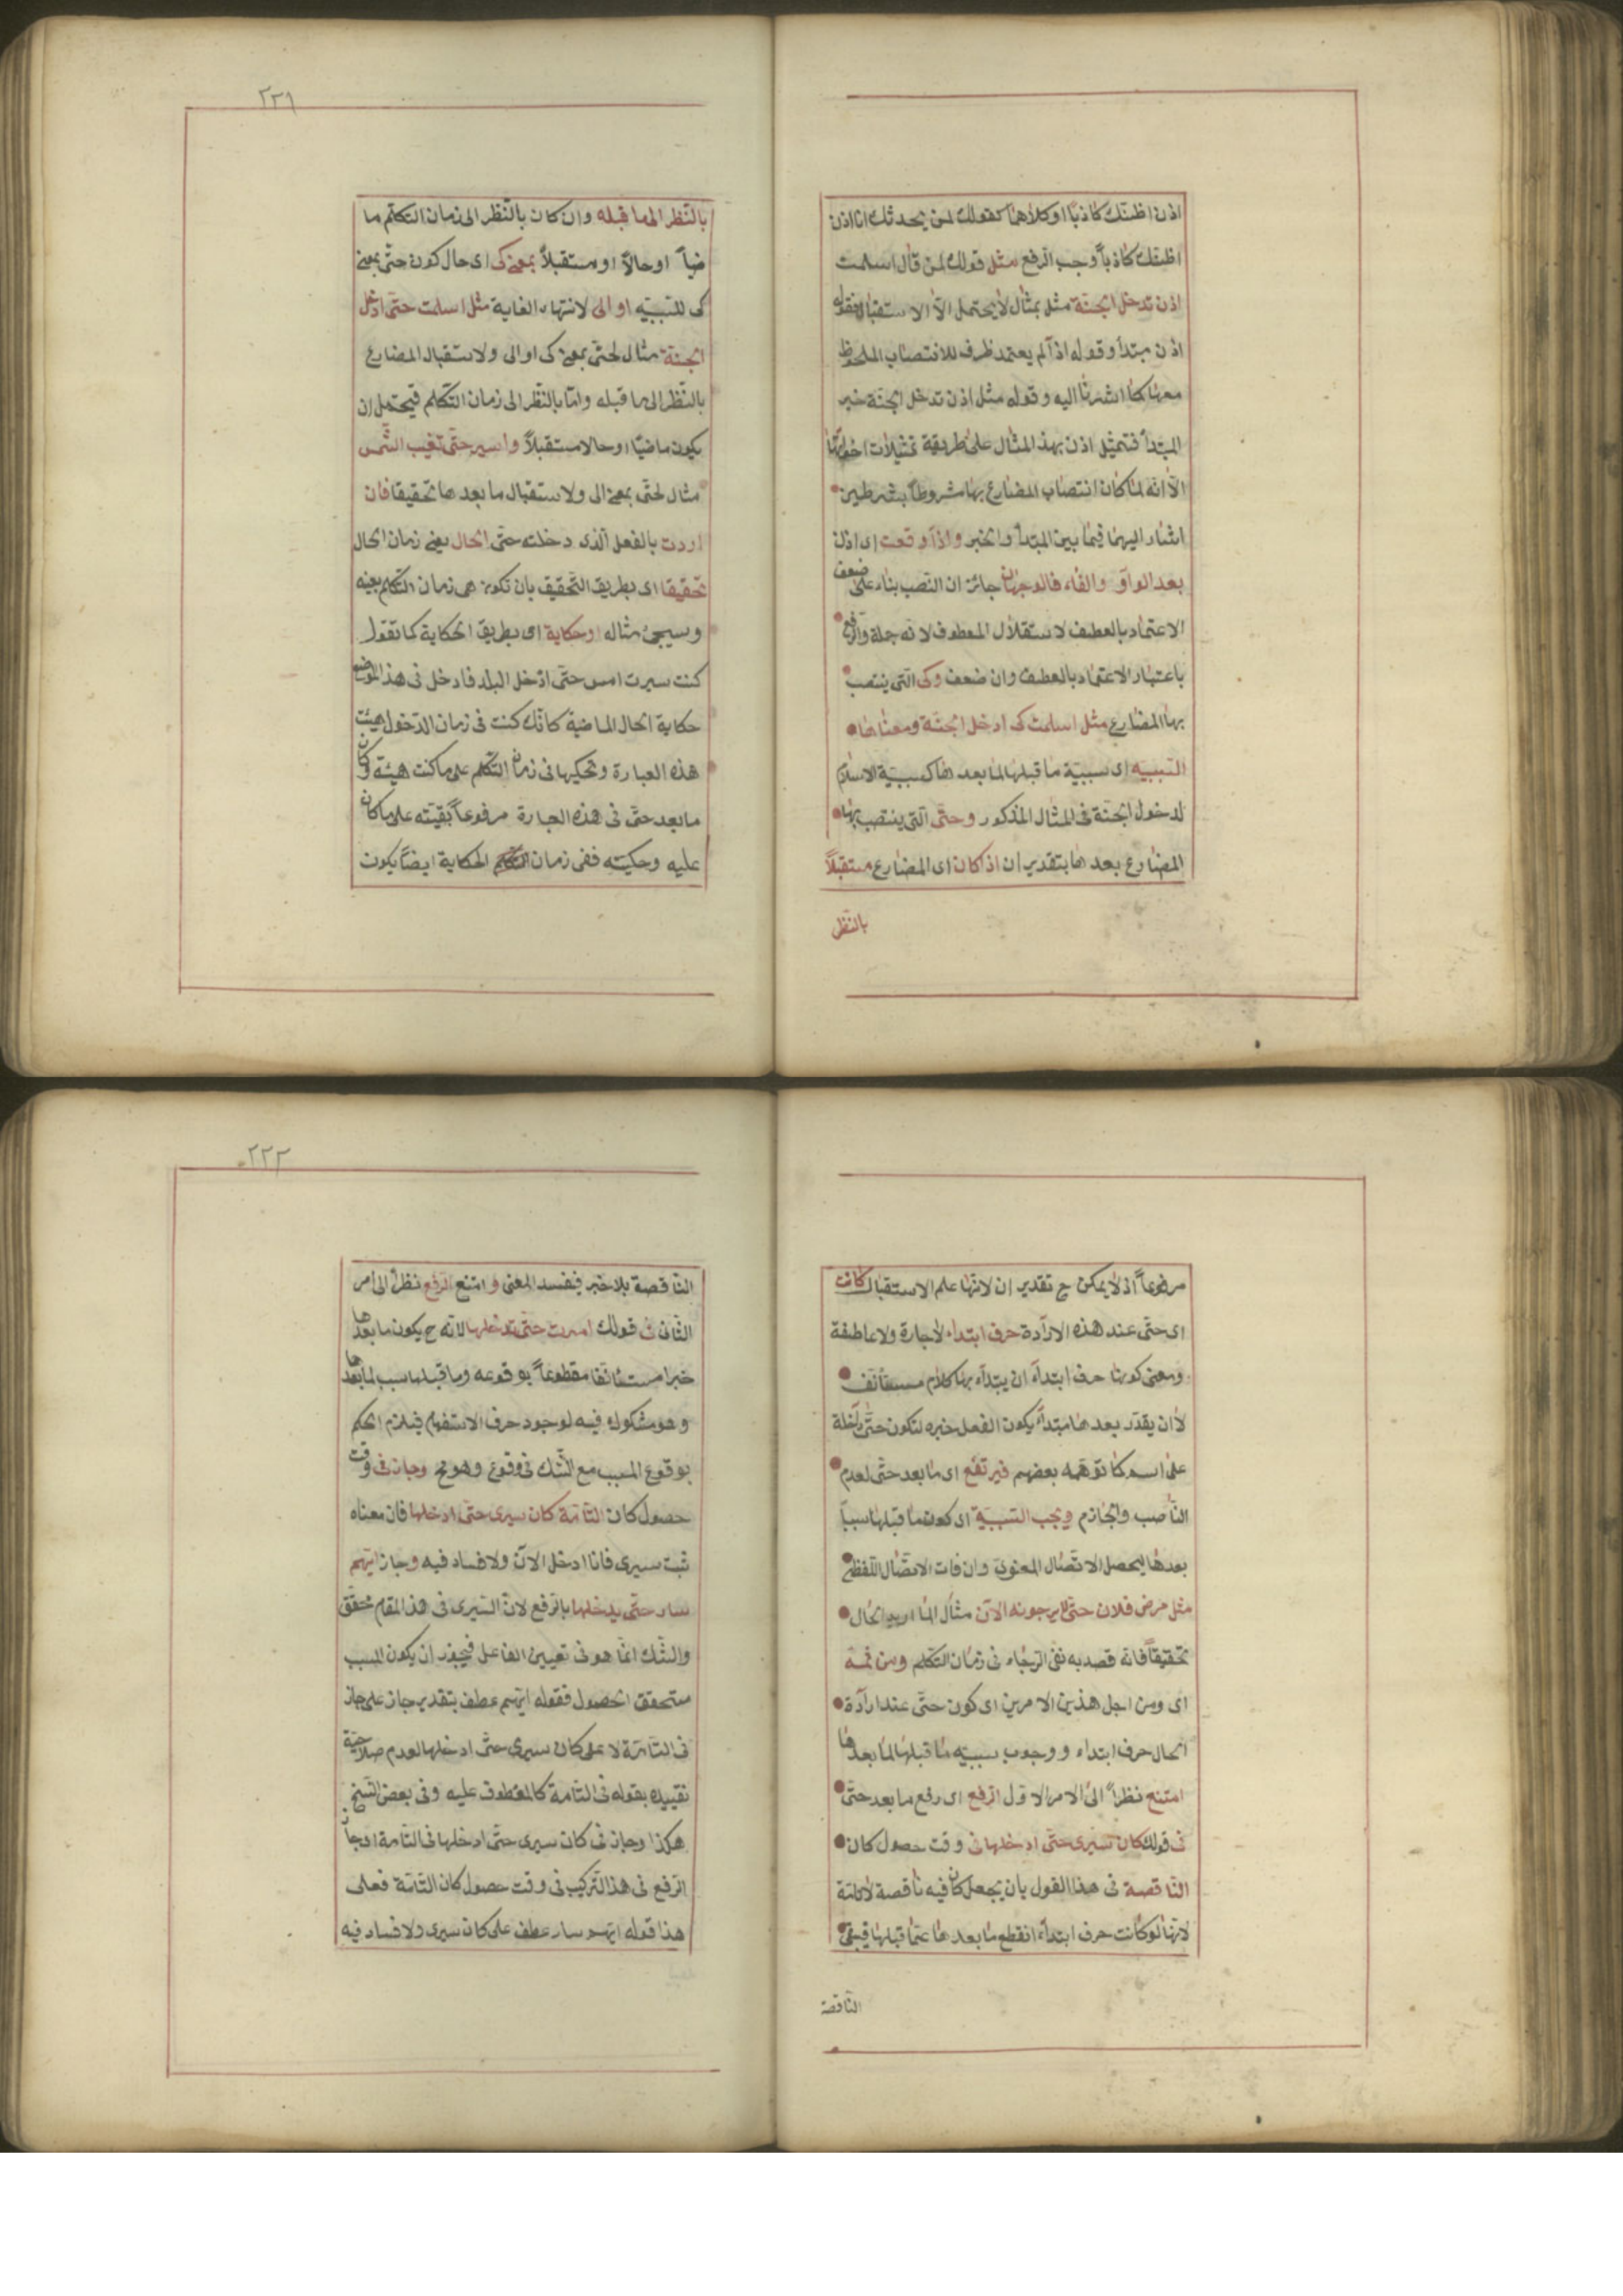 اذن اظنك كاذبا او كلاهما كقولك لمن يحدثك انا اذن
اظنك كاذباً وجب الرفع مثل قولك لمن قال اسلمت
اذن تدخل الجنة مثل بمثال لا يحتمل الا الاستقبال فقوله
اذن مبتدأ وقوله اذا لم يعتمد ظرف للانتصاب الملحوظ
معها كما اشرنا اليه وقوله مثل اذن تدخل الجنة خبر
المبتدأ فتمثيل اذن بهذ المثال على طريقة تمثيلات اخواتها
الا انه لما كان انتصاب المضارع بها مشروطاً بشرطين
اشار اليهما فيما بين المبتدأ والخبر واذا وقعت اى اذن
بعد الواو والفاء فالوجهان جائزان النصب بناء على ضعف
الاعتماد بالعطف لاستقلال المعطوف لانه جملة والرفع
باعتبار الاعتماد بالعطف وان ضعف وكى التى ينتصب
بها المضارع مثل اسلمت كى ادخل الجنة ومعناها
السببيه اى سببية ما قبلها لما بعدها كسببية الاسلام
لدخول الجنة فى المثال المذكور وحتى التى ينتصب بها
المضارع بعدها بتقدير ان اذ كان اى المضارع مستقبلاً
بالنظر
٢٣١
بالنظر الى ما قبله وان كان بالنظر الى زمان التكلم ما
ضياً او حالاً او مستقبلاً بمعنى كى اى حال كون حتى بمعنى
كى للسببيه او الى لانتهاء الغاية مثل اسلمت حتى ادخل
الجنة مثال لحتى بمعنى كى او الى ولاستقبال المضارع
بالنظر الى ما قبله واما بالنظر الى زمان التكلم فيحتمل ان
يكون ماضيا او حالا مستقبلاً واسير حتى تغيب الشمس
مثال لحتى بمعنى الى ولاستقبال ما بعدها تحقيقا فان
اردت بالفعل الذى دخلته حتى الحال يعنى زمان الحال
تحقيقا اى بطريق التحقيق بان تكون هى زمان التكلم بعينه
وسيجئ مثاله او حكاية اى بطريق الحكاية كما تقول
كنت سيرت امس حتى ادخل البلد فادخل فى هذ الموضع
حكاية الحال الماضية كانك كنت فى زمان الدخول هيئت
هذه العبارة وتحكيها فى زمان التكلم على ما كنت هيئته وكان
ما بعد حتى فى هذه العبارة مرفوعاً بقيته على ما كان
عليه وحكيته ففى زمان الحكاية ايضاً يكون
مرفوعاً اذ لا يمكن ح تقدير ان لانها علم الاستقبال كانت
اى حتى عند هذه الارادة حرف ابتداء لا جارة ولا عاطفة
ومعنى كونها حرف ابتدآء ان يبتدأ بها كلام مستأنف
لا ان يقدر بعدها مبتدأ يكون الفعل خبره لتكون حتى داخلة
على اسم كما توهمه بعضهم فيرتفع اى ما بعد حتى لعدم
الناصب والجازم ويجب السببية اى كون ما قبلها سبباً
بعدها ليحصل الاتصال المعنوى وان فات الاتصال اللفظى
مثل مرض فلان حتى لا يرجونه الآن مثال لما اريد الحال
تحقيقاً فانه قصد به نفى الرجاء فى زمان التكلم ومن ثمه
اى ومن اجل هذين الامرين اى كون حتى عند ارادة
الحال حرف ابتداء ووجوب سببيه ما قبلها لما بعدها
امتنع نظراً الى الامر الاول الرفع اى رفع ما بعد حتى
فى قولك كان سيرى حتى ادخلها فى وقت حصول كان
الناقصة فى هذا القول بان يجعل كان فيه ناقصة لا تامة
لانها لو كانت حرف ابتداء انقطع ما بعدها عما قبلها فيبقى
الناقصة
٢٣٢
الناقصة بلا خبر فيفسد المعنى وامتنع الرفع نظراً الى امر
الثانى فى قولك اسرت حتى تدخلها لانه ح يكون ما بعدها
خبرا مستأنفا مقطوعاً بوقوعه وما قبلها سبب لما بعدها
وهو مشكوك فيه لوجود حرف الاستفهام فيلزم الحكم
بوقوع المسبب مع الشك فى وقوع وهو مح وجاز فى وقت
حصول كان التامة كان سيرى حتى ادخلها فان معناه
ثبت سيرى فانا ادخل الان ولا فساد فيه وجاز ايهم
سار حتى يدخلها بالرفع لان السيرى فى هذ المقام محقق
والشك انما هو فى تعيين الفاعل فيجوز ان يكون المسبب
متحقق الحصول فقوله ايهم عطف بتقدير جاز على جاز
فى التامة لا على كان سيرى حتى ادخلها لعدم صلاحية
تقييده بقوله فى التامة كالمعطوف عليه وفى بعض النسخ
هكذا وجاز فى كان سيرى حتى ادخلها فى التامة اى جاز
الرفع فى هذ التركيب فى وقت حصول كان التامة فعلى
هذا قوله ايهم سار عطف على كان سيرى ولا فساد فيه